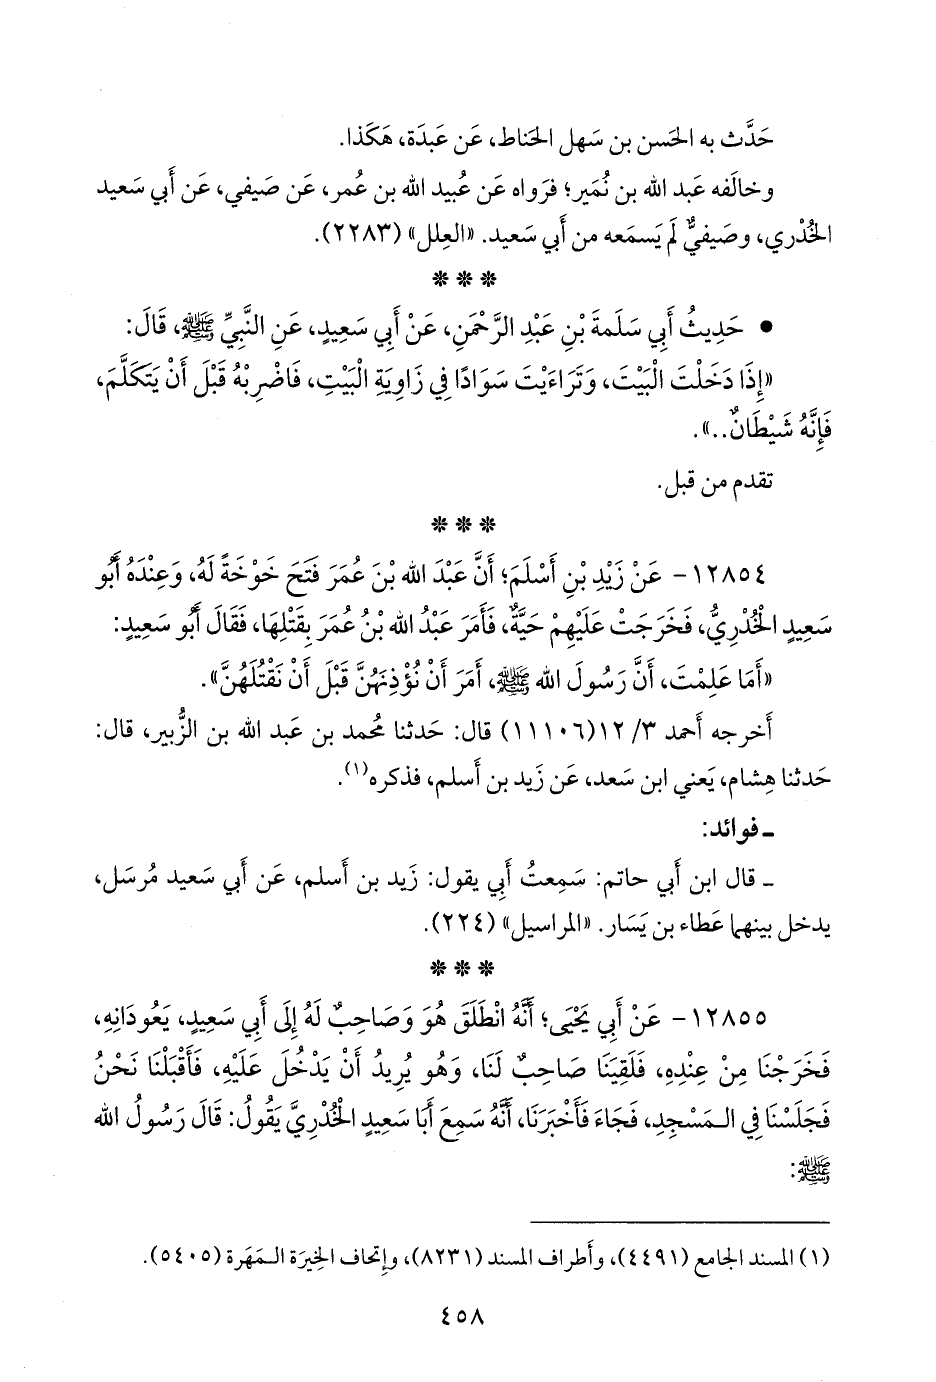 حَدَّث به الحَسن بن سَهل الحَناط، عَن عَبدَة، هَكَذا.
وخالَفه عَبد الله بن نُمَير؛ فرَواه عَن عُبيد الله بن عُمر، عَن صَيفي، عَن أَبي سَعيد
الخُدْري، وصَيفيٌّ لَم يَسمَعه من أَبي سَعيد. «العِلل» (٢٢٨٣).
***
• حَدِيثُ أَبِي سَلَمةَ بْنِ عَبْدِ الرَّحْمَنِ، عَنْ أَبِي سَعِيدٍ، عَنِ النَّبِيِّ ﷺ، قَالَ:
«إِذَا دَخَلْتَ الْبَيْتَ، وَتَرَاءَيْتَ سَوَادًا فِي زَاوِيَةِ الْبَيْتِ، فَاضْرِبْهُ قَبْلَ أَنْ يَتَكَلَّمَ،
فَإِنَّهُ شَيْطَانٌ..».
تقدم من قبل.
***
١٢٨٥٤- عَنْ زَيْدِ بْنِ أَسْلَمَ؛ أَنَّ عَبْدَ الله بْنَ عُمَرَ فَتَحَ خَوْخَةً لَهُ، وَعِنْدَهُ أَبُو
سَعِيدٍ الْخُدْرِيُّ، فَخَرَجَتْ عَلَيْهِمْ حَيَّةٌ، فَأَمَرَ عَبْدُ الله بْنُ عُمَرَ بِقَتْلِهَا، فَقَالَ أَبُو سَعِيدٍ:
«أَمَا عَلِمْتَ، أَنَّ رَسُولَ الله ﷺ، أَمَرَ أَنْ نُؤْذِنَهُنَّ قَبْلَ أَنْ نَقْتُلَهُنَّ».
أَخرجه أَحمد ٣/ ١٢(١١١٠٦) قال: حَدثنا مُحمد بن عَبد الله بن الزُّبير، قال:
حَدثنا هِشام، يَعني ابن سَعد، عَن زَيد بن أَسلم، فذكره(١).
ـ فوائد:
ـ قال ابن أَبي حاتم: سَمِعتُ أَبي يقول: زَيد بن أَسلم، عَن أَبي سَعيد مُرسَل،
يدخل بينهما عَطاء بن يَسَار. «المراسيل» (٢٢٤).
***
١٢٨٥٥- عَنْ أَبِي يَحْيَى؛ أَنَّهُ انْطَلَقَ هُوَ وَصَاحِبٌ لَهُ إِلَى أَبِي سَعِيدٍ، يَعُودَانِهِ،
فَخَرَجْنَا مِنْ عِنْدِهِ، فَلَقِيَنَا صَاحِبٌ لَنَا، وَهُو يُرِيدُ أَنْ يَدْخُلَ عَلَيْهِ، فَأَقْبَلْنَا نَحْنُ
فَجَلَسْنَا فِي الـمَسْجِدِ، فَجَاءَ فَأَخْبَرَنَا، أَنَّهُ سَمِعَ أَبَا سَعِيدٍ الْخُدْرِيَّ يَقُولُ: قَالَ رَسُولُ الله
ﷺ:
(١) المسند الجامع (٤٤٩١)، وأَطراف المسند (٨٢٣١)، وإِتحاف الخِيرَة الـمَهَرة (٥٤٠٥).
٤٥٨